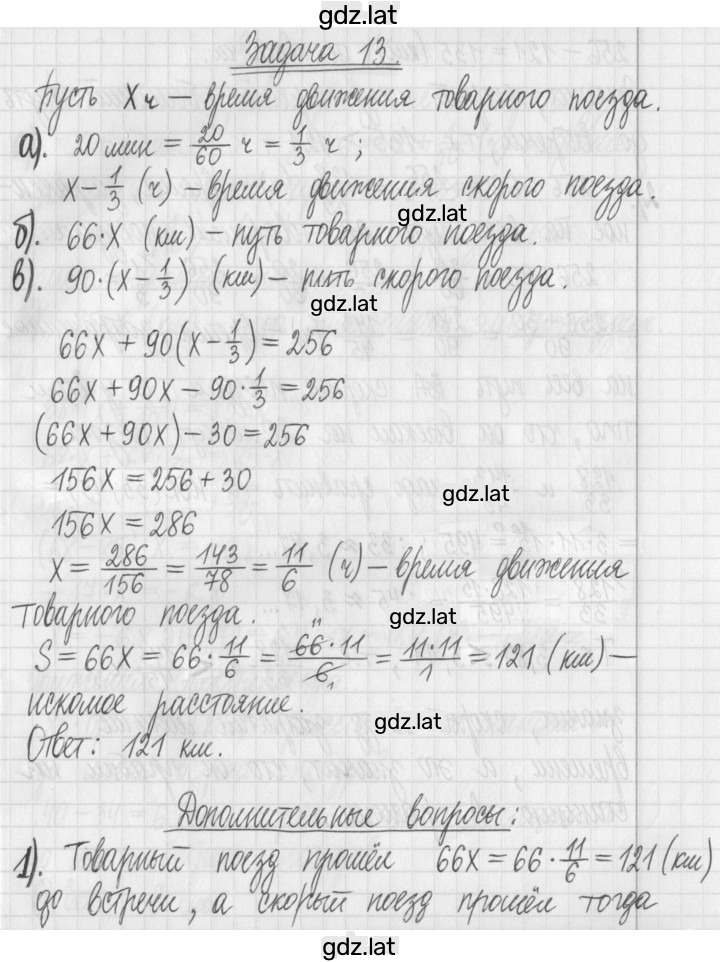 gdz.lat
Задача 13.
Пусть x ч – время движения товарного поезда.
а). 20 мин = 20/60 ч = 1/3 ч ;
x – 1/3 (ч) – время движения скорого поезда.
gdz.lat
б). 66·x (км) – путь товарного поезда.
в). 90·(x – 1/3) (км) – путь скорого поезда.
gdz.lat
66x + 90(x – 1/3) = 256
66x + 90x – 90·1/3 = 256
(66x + 90x) – 30 = 256
156x = 256 + 30
gdz.lat
156x = 286
x = 286/156 = 143/78 = 11/6 (ч) – время движения
товарного поезда.
gdz.lat
S = 66x = 66·11/6 = 66·11/6 = 11·11/1 = 121 (км) –
искомое расстояние.
gdz.lat
Ответ: 121 км.
Дополнительные вопросы:
1). Товарный поезд прошёл 66x = 66·11/6 = 121 (км)
до встречи, а скорый поезд прошёл тогда
gdz.lat